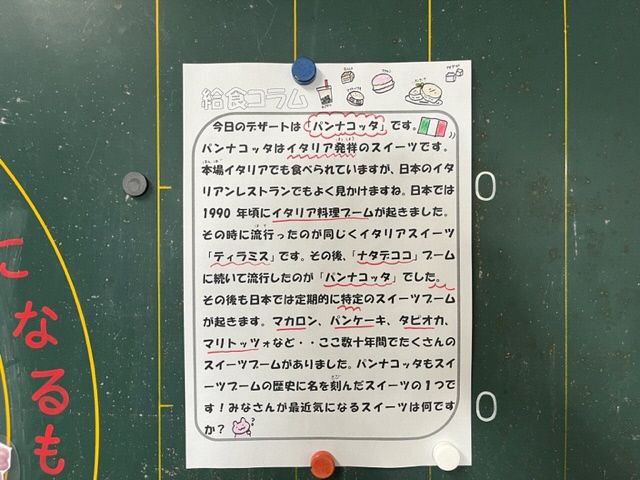 給食コラム
今日のデザートは「パンナコッタ」です。
パンナコッタはイタリア発祥のスイーツです。
本場イタリアでも食べられていますが、日本のイタ
リアンレストランでもよく見かけますね。日本では
1990 年頃にイタリア料理ブームが起きました。
その時に流行ったのが同じくイタリアスイーツ
「ティラミス」です。その後、「ナタデココ」ブーム
に続いて流行したのが「パンナコッタ」でした。
その後も日本では定期的に特定のスイーツブーム
が起きます。マカロン、パンケーキ、タピオカ、
マリトッツォなど・・ここ数十年間でたくさんの
スイーツブームがありました。パンナコッタもスイ
ーツブームの歴史に名を刻んだスイーツの1つで
す！みなさんが最近気になるスイーツは何です
か？
になるも